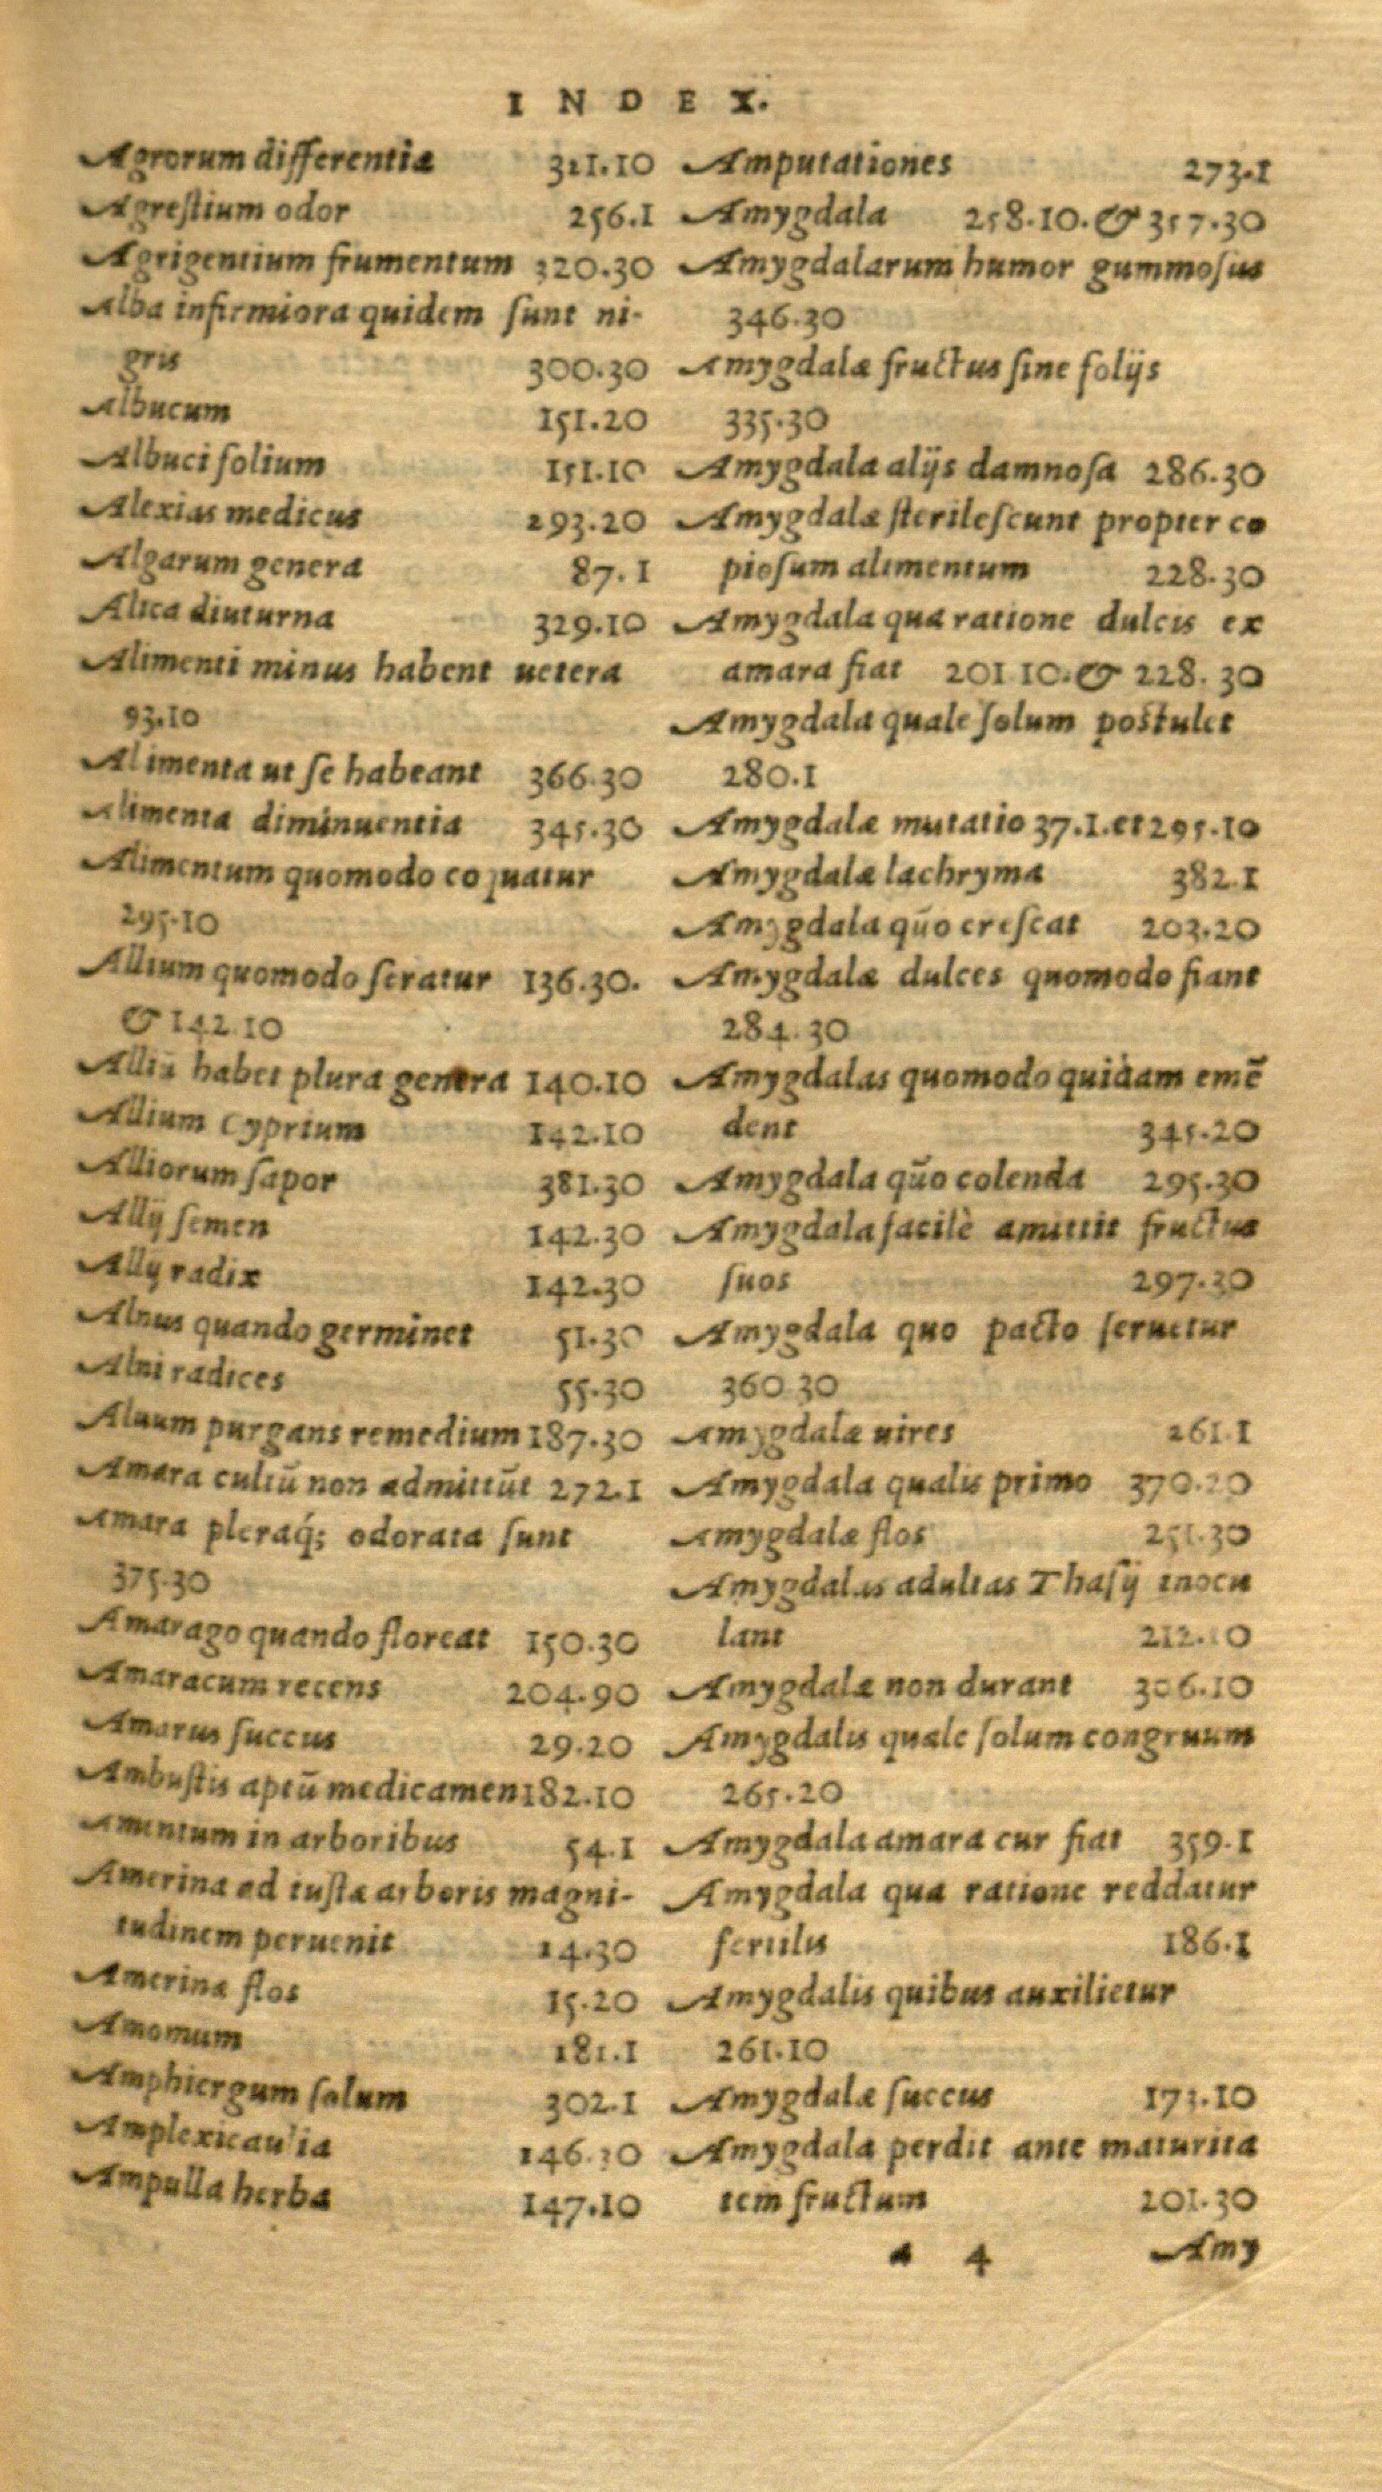 INDEX.
Agrorum differentiæ 321.10
Agreſtium odor 256.1
Agrigentium frumentum 320.30
Alba infirmiora quidem ſunt ni-
gris 300.30
Albucum 151.20
Albuci folium 151.10
Alexias medicus 293.20
Algarum genera 87.1
Alica diuturna 329.10
Alimenti minus habent uetera
93.10
Alimenta ut ſe habeant 366.30
Alimenta diminuentia 345.30
Alimentum quomodo coquatur
295.10
Allium quomodo ſeratur 136.30.
& 142.10
Alliū habet plura genera 140.10
Allium Cyprium 142.10
Alliorum ſapor 381.30
Allij ſemen 142.30
Allij radix 142.30
Alnus quando germinet 51.30
Alni radices 55.30
Aluum purgans remedium 187.30
Amara cultū non admittūt 272.1
Amara pleraq́; odorata ſunt
375.30
Amarago quando floreat 150.30
Amaracum recens 204.90
Amarus ſuccus 29.20
Ambuſtis aptū medicamen 182.10
Amentum in arboribus 54.1
Amerina ad iuſtæ arboris magni-
tudinem peruenit 14.30
Amerinæ flos 15.20
Amomum 181.1
Amphiergum ſolum 302.1
Amplexicaulia 146.30
Ampulla herba 147.10
Amputationes 273.1
Amygdala 258.10.& 357.30
Amygdalarum humor gummoſus
346.30
Amygdalæ fructus ſine folijs
335.30
Amygdala alijs damnoſa 286.30
Amygdalæ ſterileſcunt propter co
pioſum alimentum 228.30
Amygdala qua ratione dulcis ex
amara fiat 201 10.& 228.30
Amygdala quale ſolum poſtulet
280.1
Amygdalæ mutatio 37.1.et 295.10
Amygdalæ lachryma 382.1
Amygdala quō creſcat 203.20
Amygdalæ dulces quomodo fiant
284.30
Amygdalas quomodo quidam emē
dent 345.20
Amygdala quō colenda 295.30
Amygdala facilè amittit fructus
ſuos 297.30
Amygdala quo pacto ſeruetur
360 30
Amygdalæ uires 261.1
Amygdala qualis primo 370.20
Amygdalæ flos 251.30
Amygdalas adultas Thaſij inocu
lant 212.10
Amygdalæ non durant 306.10
Amygdalis quale ſolum congruum
265.20
Amygdala amara cur fiat 359.1
Amygdala qua ratione reddatur
fertilis 186.1
Amygdalis quibus auxilietur
261.10
Amygdalæ ſuccus 173.10
Amygdala perdit ante maturita
tem fructum 201.30
a 4 Amy